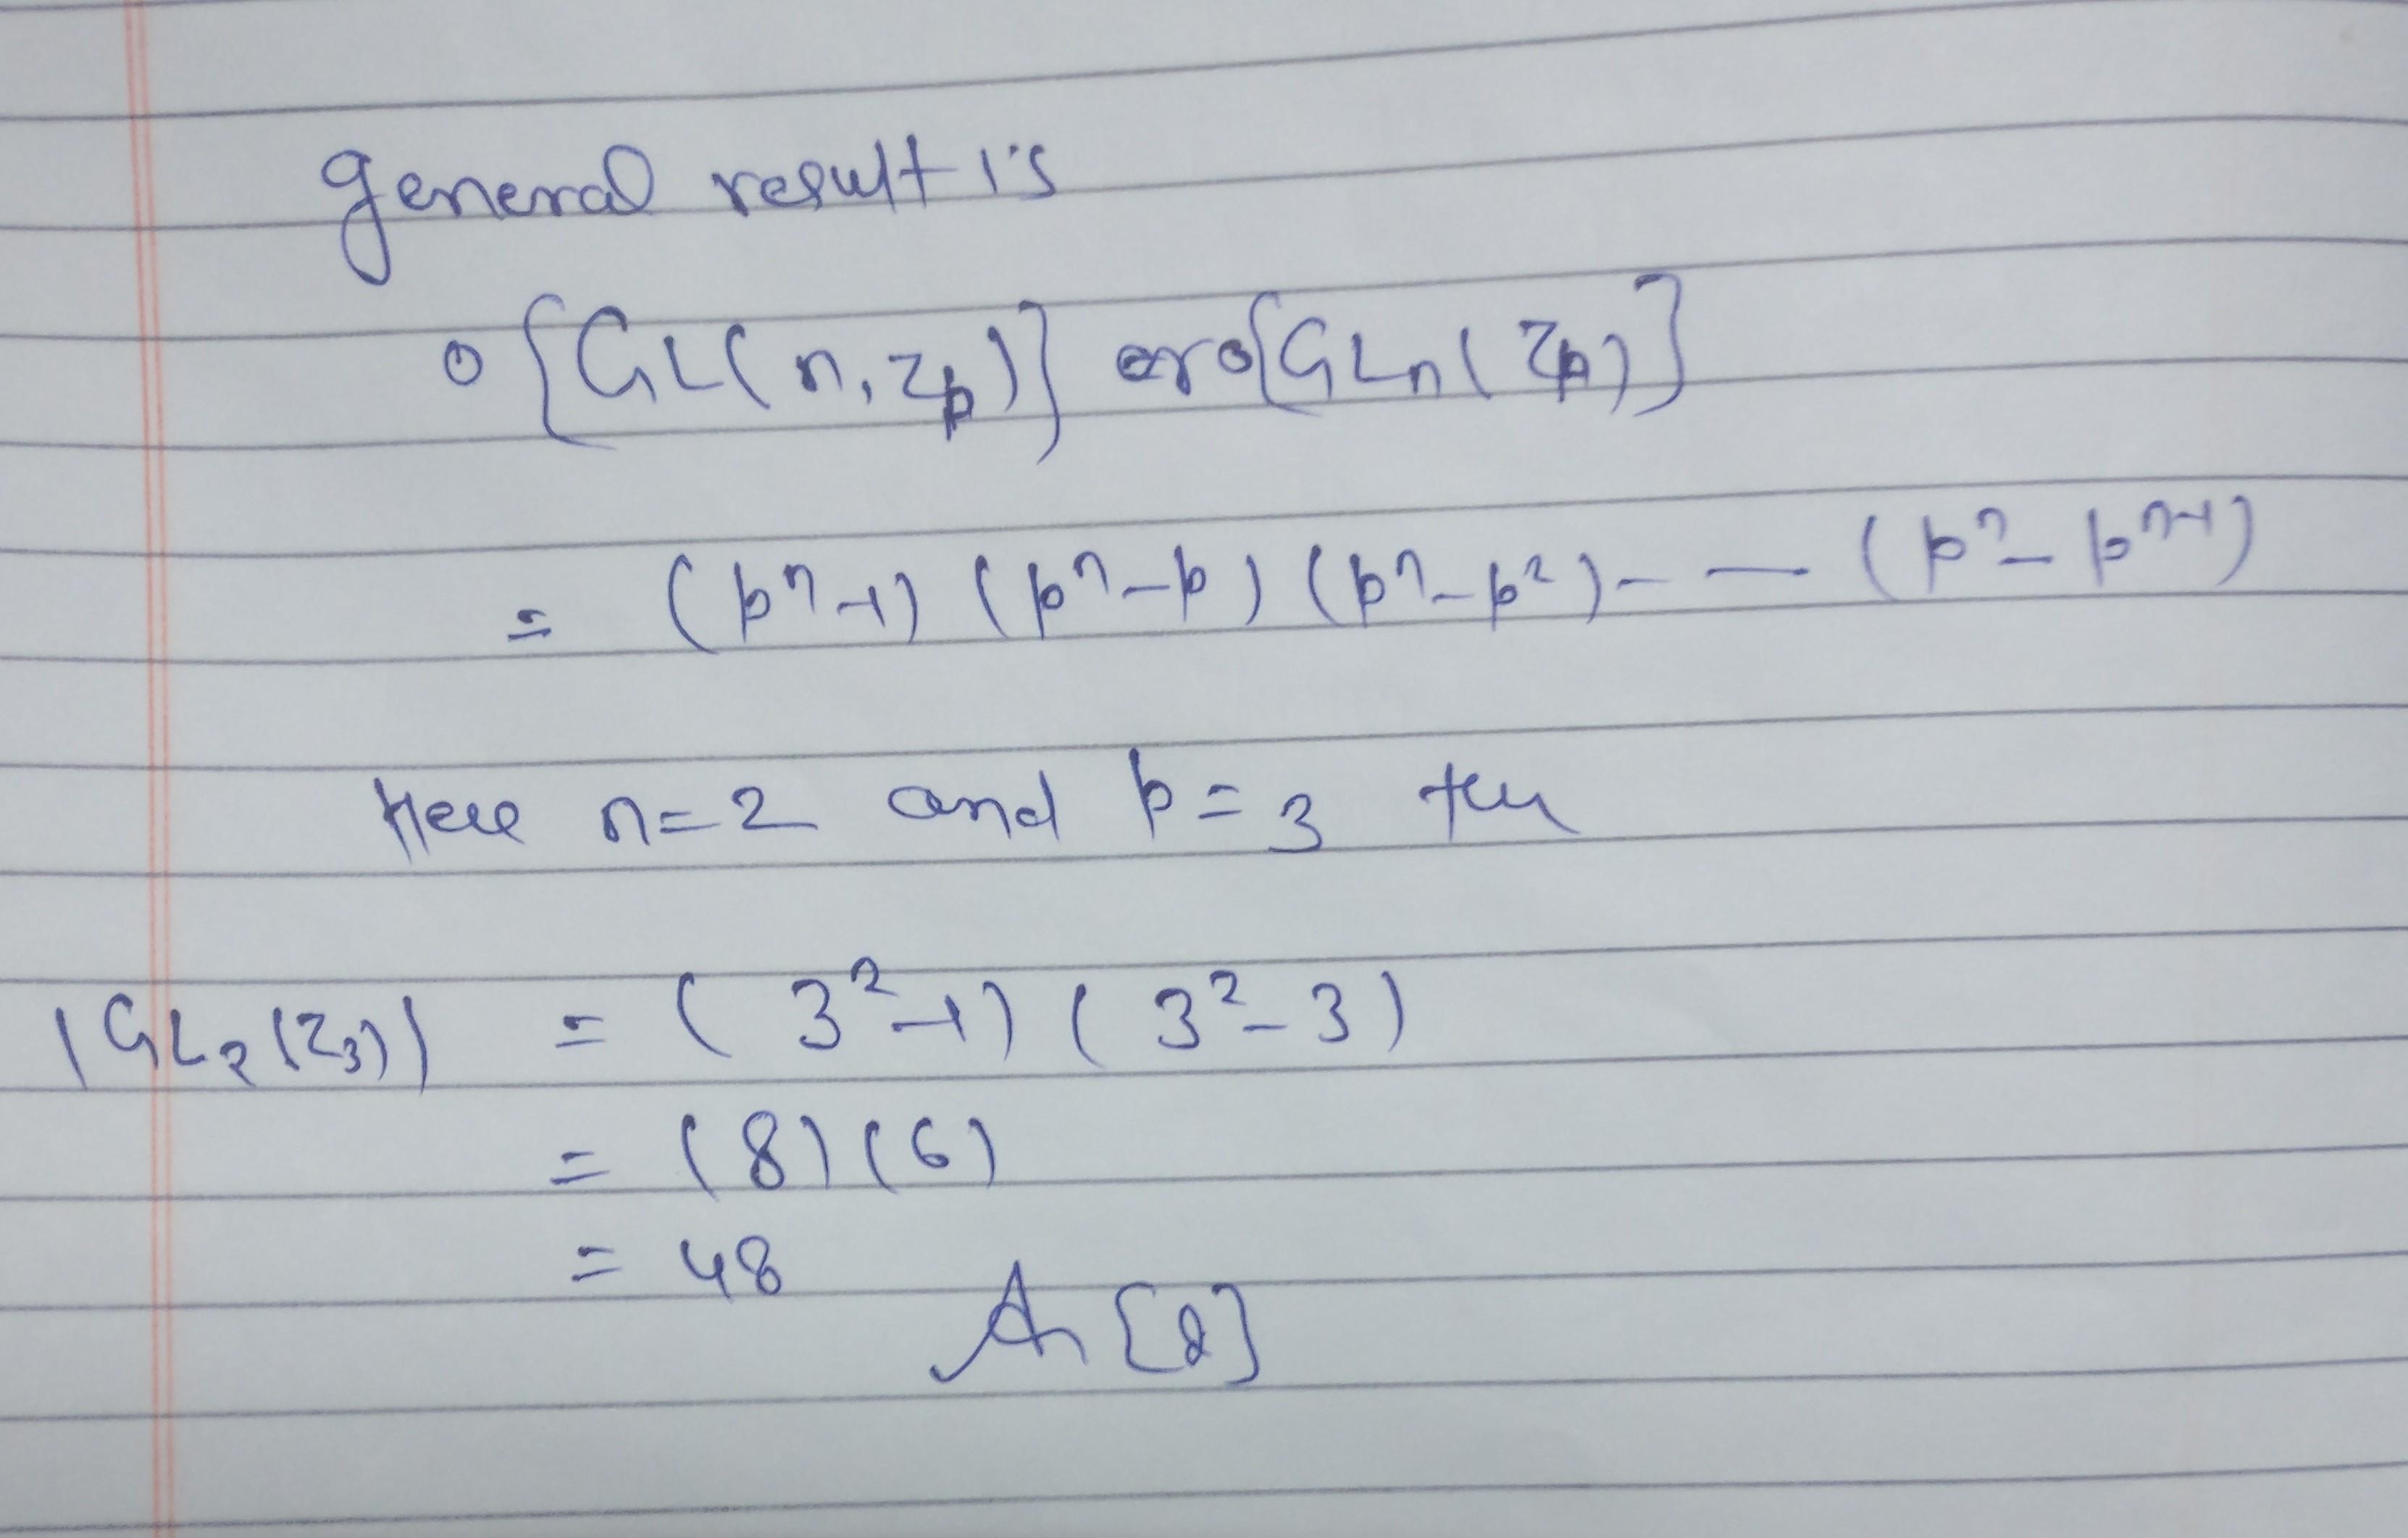 general result is
o{GL(n,Zp)} or o[GLn(Zp)]
= (pⁿ-1) (pⁿ-p) (pⁿ-p²)- — (pⁿ-pⁿ⁻¹)
Here n=2 and p=3 then
|GL₂(Z₃)| = (3²-1) (3²-3)
= (8)(6)
= 48
An [2]